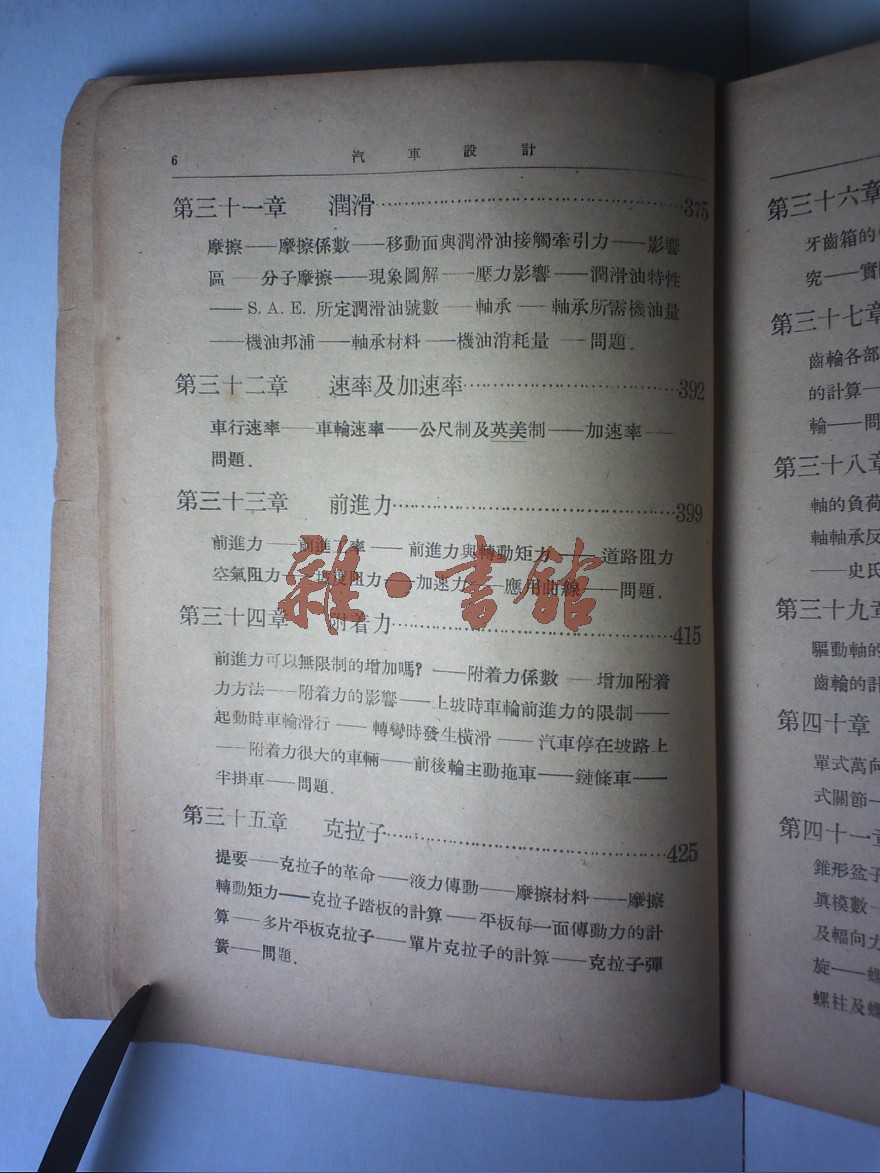 6 汽車設計
第三十一章 潤滑……375
摩擦——摩擦係數——移動面與潤滑油接觸牽引力——影響
區——分子摩擦——現象圖解——壓力影響——潤滑油特性
——S. A. E. 所定潤滑油號數——軸承——軸承所需機油量
——機油邦浦——軸承材料——機油消耗量——問題.
第三十二章 速率及加速率……392
車行速率——車輪速率——公尺制及英美制——加速率——
問題.
第三十三章 前進力……399
前進力——前進效率——前進力與轉動矩力——道路阻力
空氣阻力——坡度阻力——加速力——應用曲線——問題.
第三十四章 附着力……415
前進力可以無限制的增加嗎?——附着力係數——增加附着
力方法——附着力的影響——上坡時車輪前進力的限制——
起動時車輪滑行——轉彎時發生橫滑——汽車停在坡路上
——附着力很大的車輛——前後輪主動拖車——鏈條車——
半掛車——問題.
第三十五章 克拉子……425
提要——克拉子的革命——液力傳動——摩擦材料——摩擦
轉動矩力——克拉子踏板的計算——平板每一面傳動力的計
算——多片平板克拉子——單片克拉子的計算——克拉子彈
簧——問題.
雜·書館
第三十六章
牙齒箱的
究——實
第三十七章
齒輪各部
的計算——
輪——問
第三十八章
軸的負荷
軸軸承反
——史氏
第三十九章
驅動軸的
齒輪的計
第四十章
單式萬向
式關節—
第四十一章
錐形盆子
眞模數—
及輻向力
旋——螺
螺柱及螺